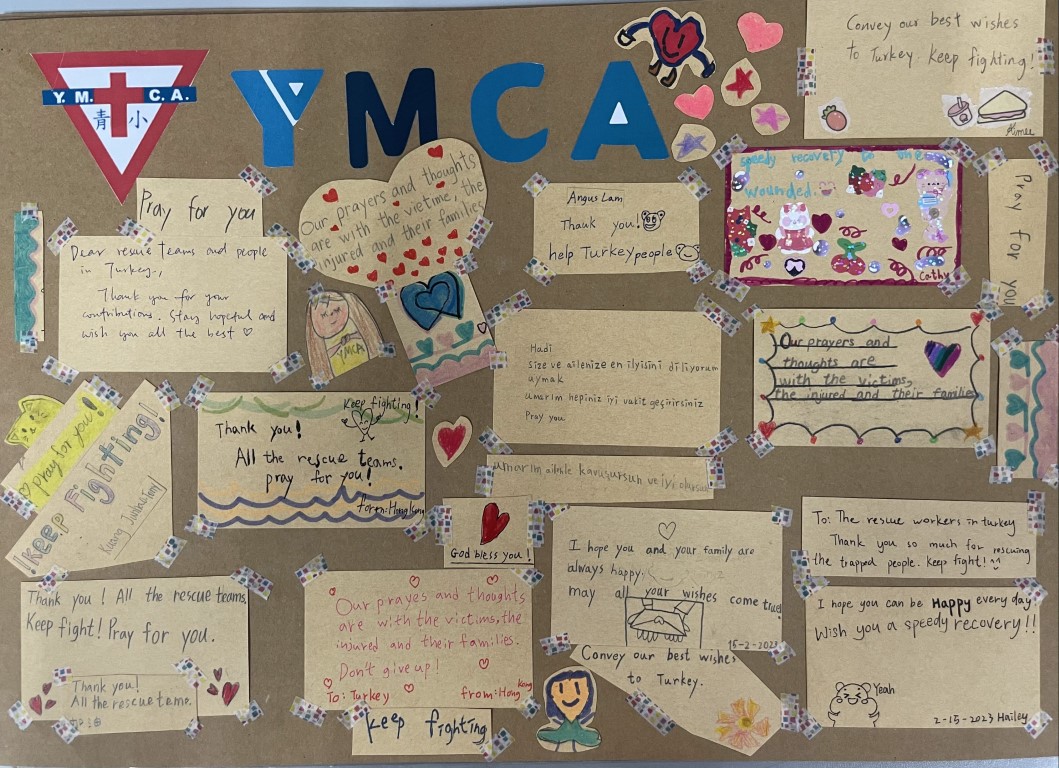 Y.M. C.A.
青 小
YMCA
Convey our best wishes
to Turkey keep fighting!
Aimee
Pray for you
Dear rescue teams and people
in Turkey,
Thank you for your
contributions. Stay hopeful and
wish you all the best
Our prayers and thoughts
are with the vietime, the
injured and their families
YMCA
Angus Lam
Thank you!
help Turkey people
speedy recovery to the
wounded.
Cathy
Pray for you
Hadi
size ve ailenize en iyisini diliyorum
uymak
umarım hepiniz iyi vakit geçirirsiniz
Pray you
Our prayers and
thoughts are
with the victims,
the injured and their families
pray for you!
Keep Fighting!
Keep fighting!
Thank you!
All the rescue teams.
pray for you!
form:Hong Kong
umarım ailenle kavuşursun ve iyi olursun
God bless you!
I hope you and your family are
always happy.
may all your wishes come true!
15-2-2023
Convey our best wishes
to Turkey.
To: The rescue workers in turkey
Thank you so much for rescuing
the trapped people. keep fight! ^^
I hope you can be Happy every day
Wish you a speedy recovery!!
Yeah
2-15-2023 Hailey
Thank you! All the rescue teams.
Keep fight! Pray for you.
Thank you!
All the rescue teme.
加油
Our prayes and thoughts
are with the victims, the
injured and their families.
Don't give up!
To: Turkey from: Hong Kong
keep fighting